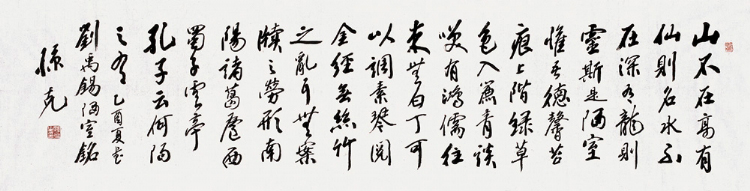 山不在高有
仙則名水不
在深有龍則
靈斯是陋室
惟吾德馨苔
痕上階綠草
色入簾青談
笑有鴻儒往
來無白丁可
以調素琴閱
金經無絲竹
之亂耳無案
牘之勞形南
陽諸葛廬西
蜀子雲亭
孔子云何陋
之有 乙酉夏書
劉禹錫陋室銘